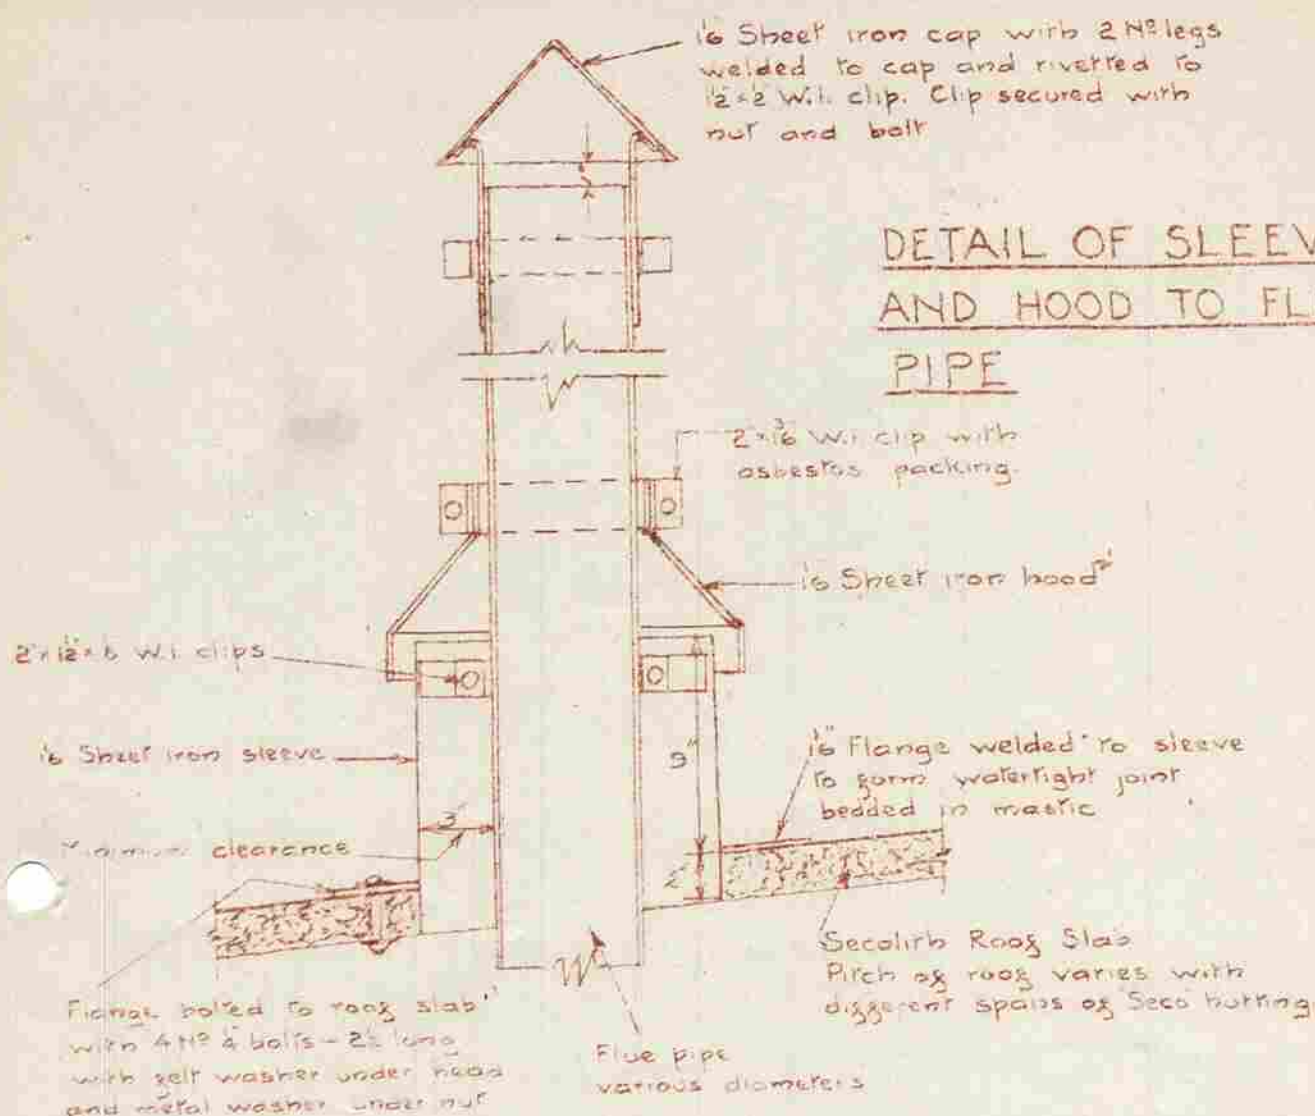 1/16 Sheet iron cap with 2 Nº legs
welded to cap and rivetted to
1/2 × 2 W.I. clip. Clip secured with
nut and bolt
DETAIL OF SLEEV
AND HOOD TO FL
PIPE
2 × 3/16 W.I. clip with
asbestos packing.
1/16 Sheet iron hood
W.I. clips
1/16 Sheet iron sleeve
9"
3"
2"
1/16" Flange welded to sleeve
to form watertight joint
bedded in mastic
Minimum clearance
Secolith Roof Slab
Pitch of roof varies with
different spans of Seco hutting
Flange bolted to roof slab
with 4 Nº bolts - long
with felt washer under head
and metal washer under nut
Flue pipe
various diameters